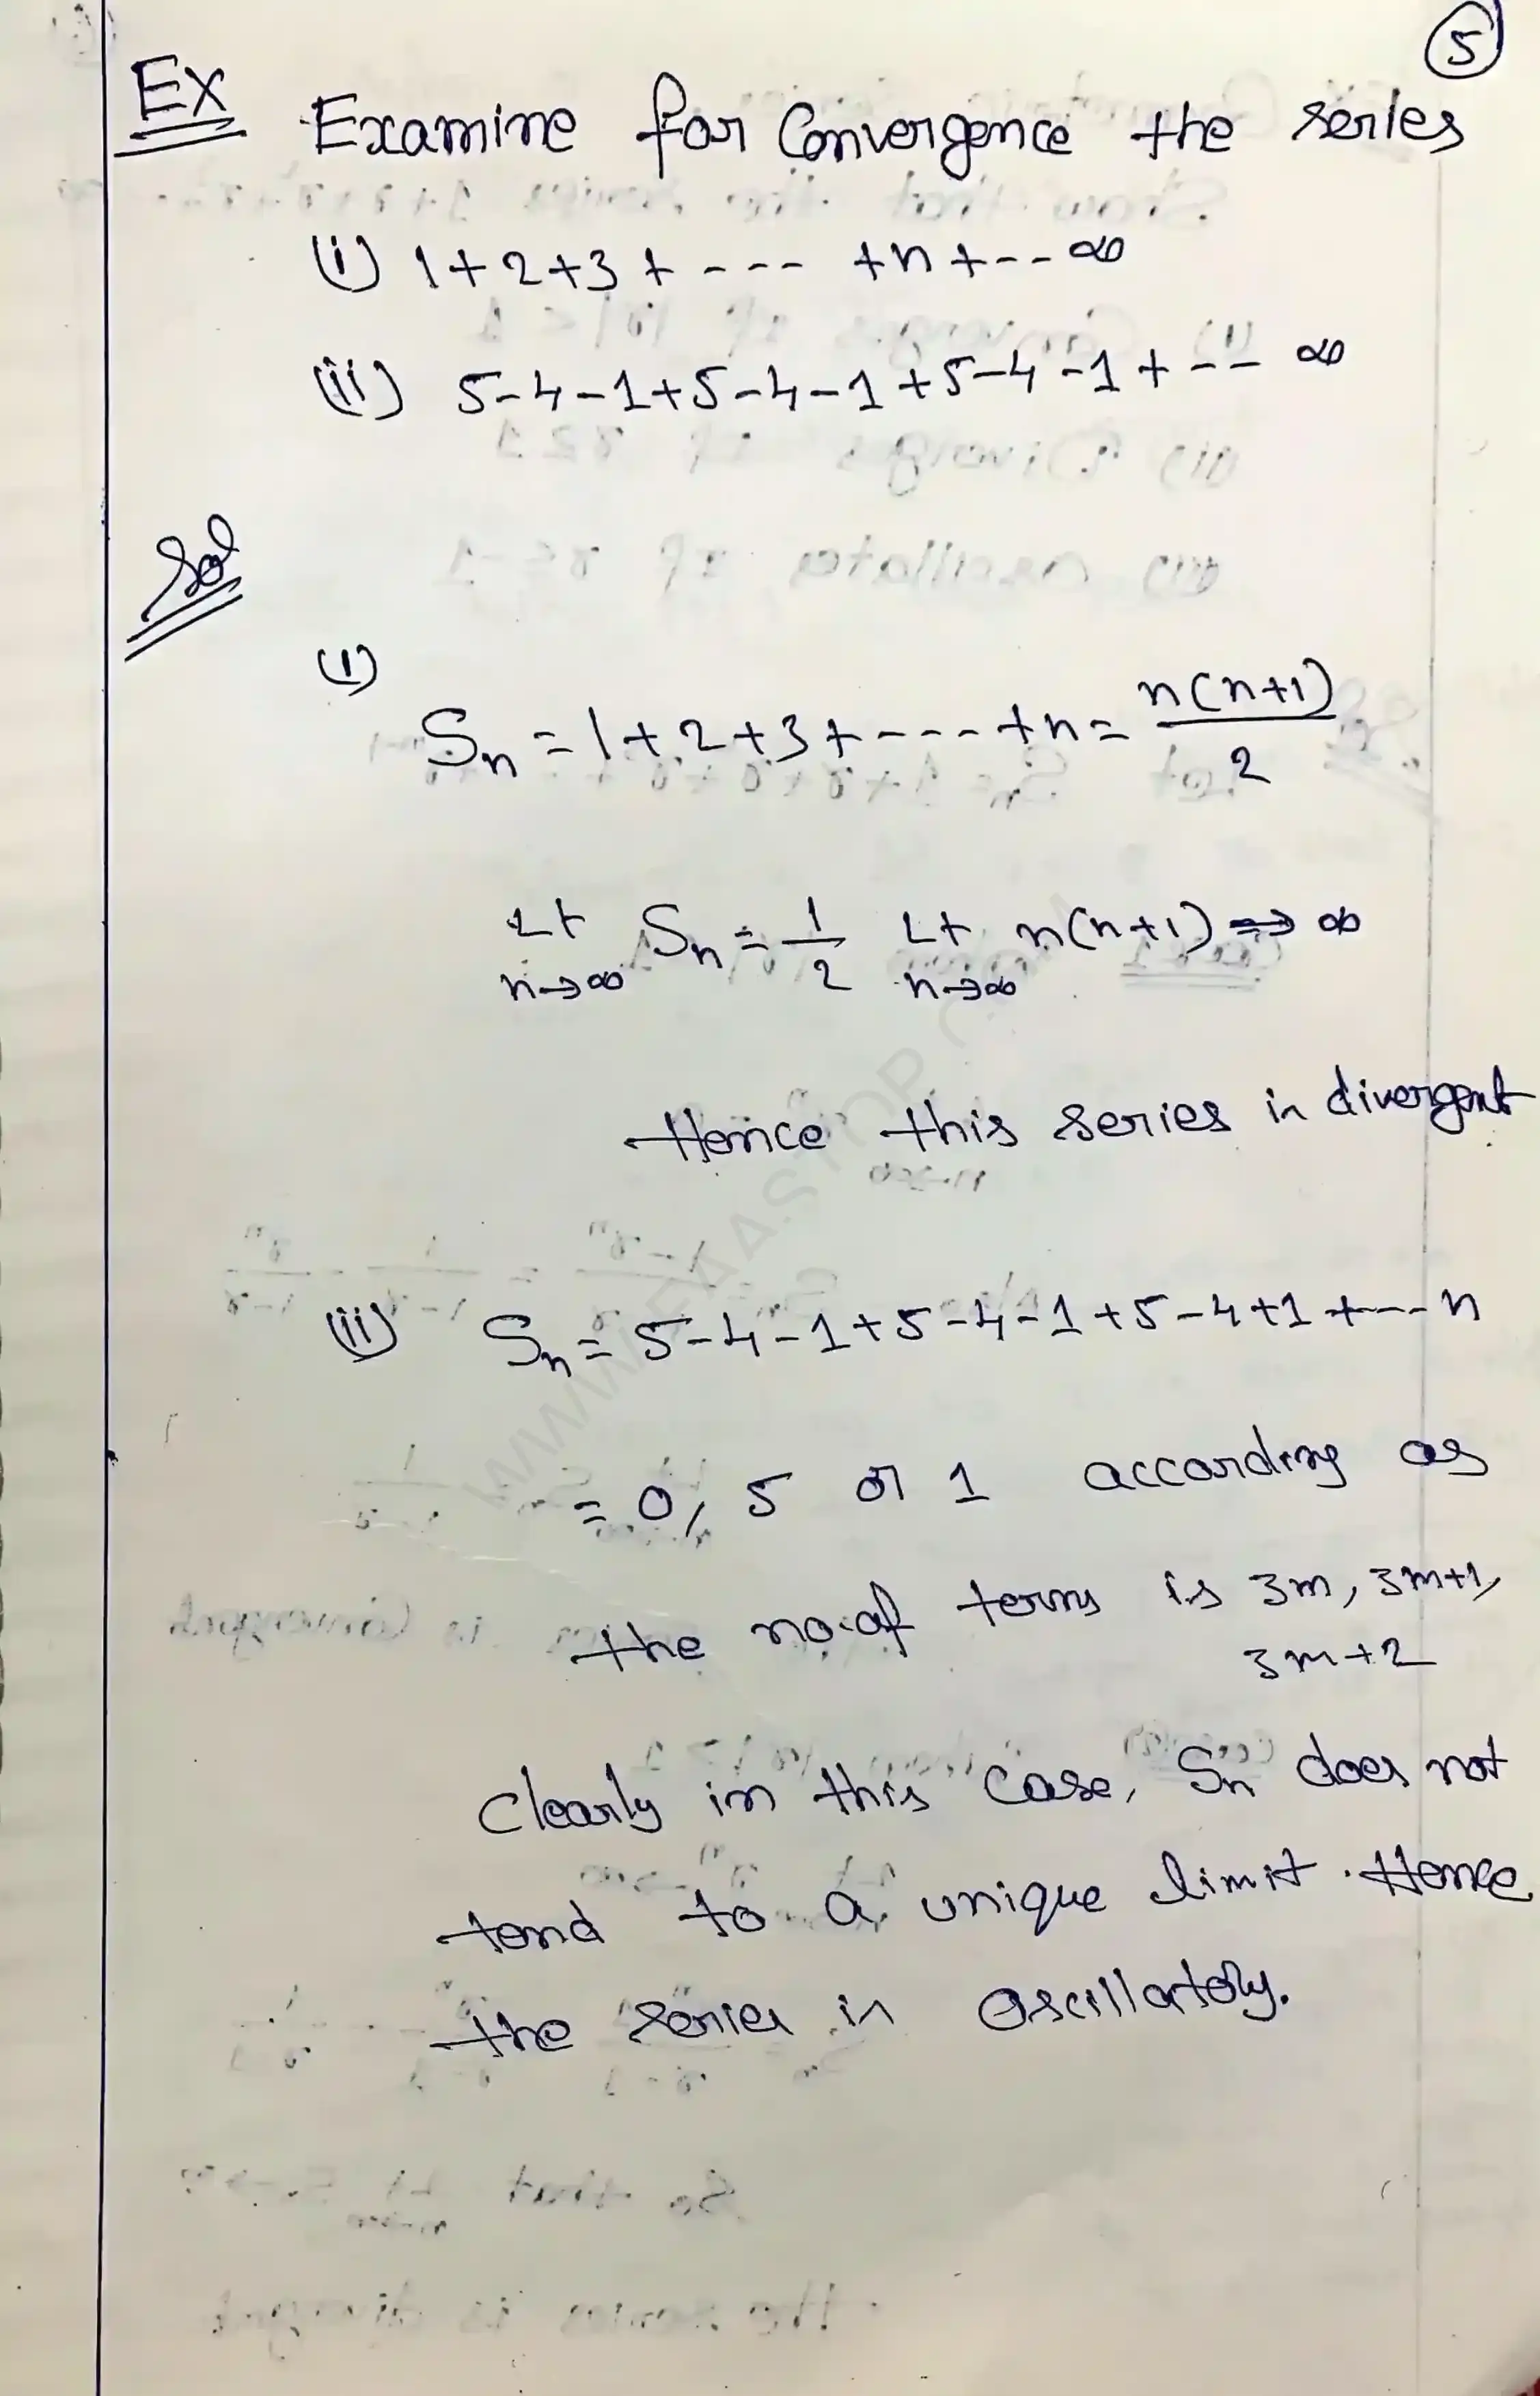 5
Ex Examine for Convergence the series
(i) 1+2+3+---- +n+--∞
(ii) 5-4-1+5-4-1+5-4-1+-- ∞
Sol
(i)
Sn = 1+2+3+----+n = n(n+1)/2
Lt n→∞ Sn = 1/2 Lt n→∞ n(n+1) ⇒ ∞
Hence this series in divergent
(ii) Sn = 5-4-1+5-4-1+5-4+1+---n
= 0, 5 or 1 according as
the no. of terms is 3m, 3m+1,
3m+2
Clearly in this case, Sn does not
tend to a unique limit. Hence
the series in Oscillatory.